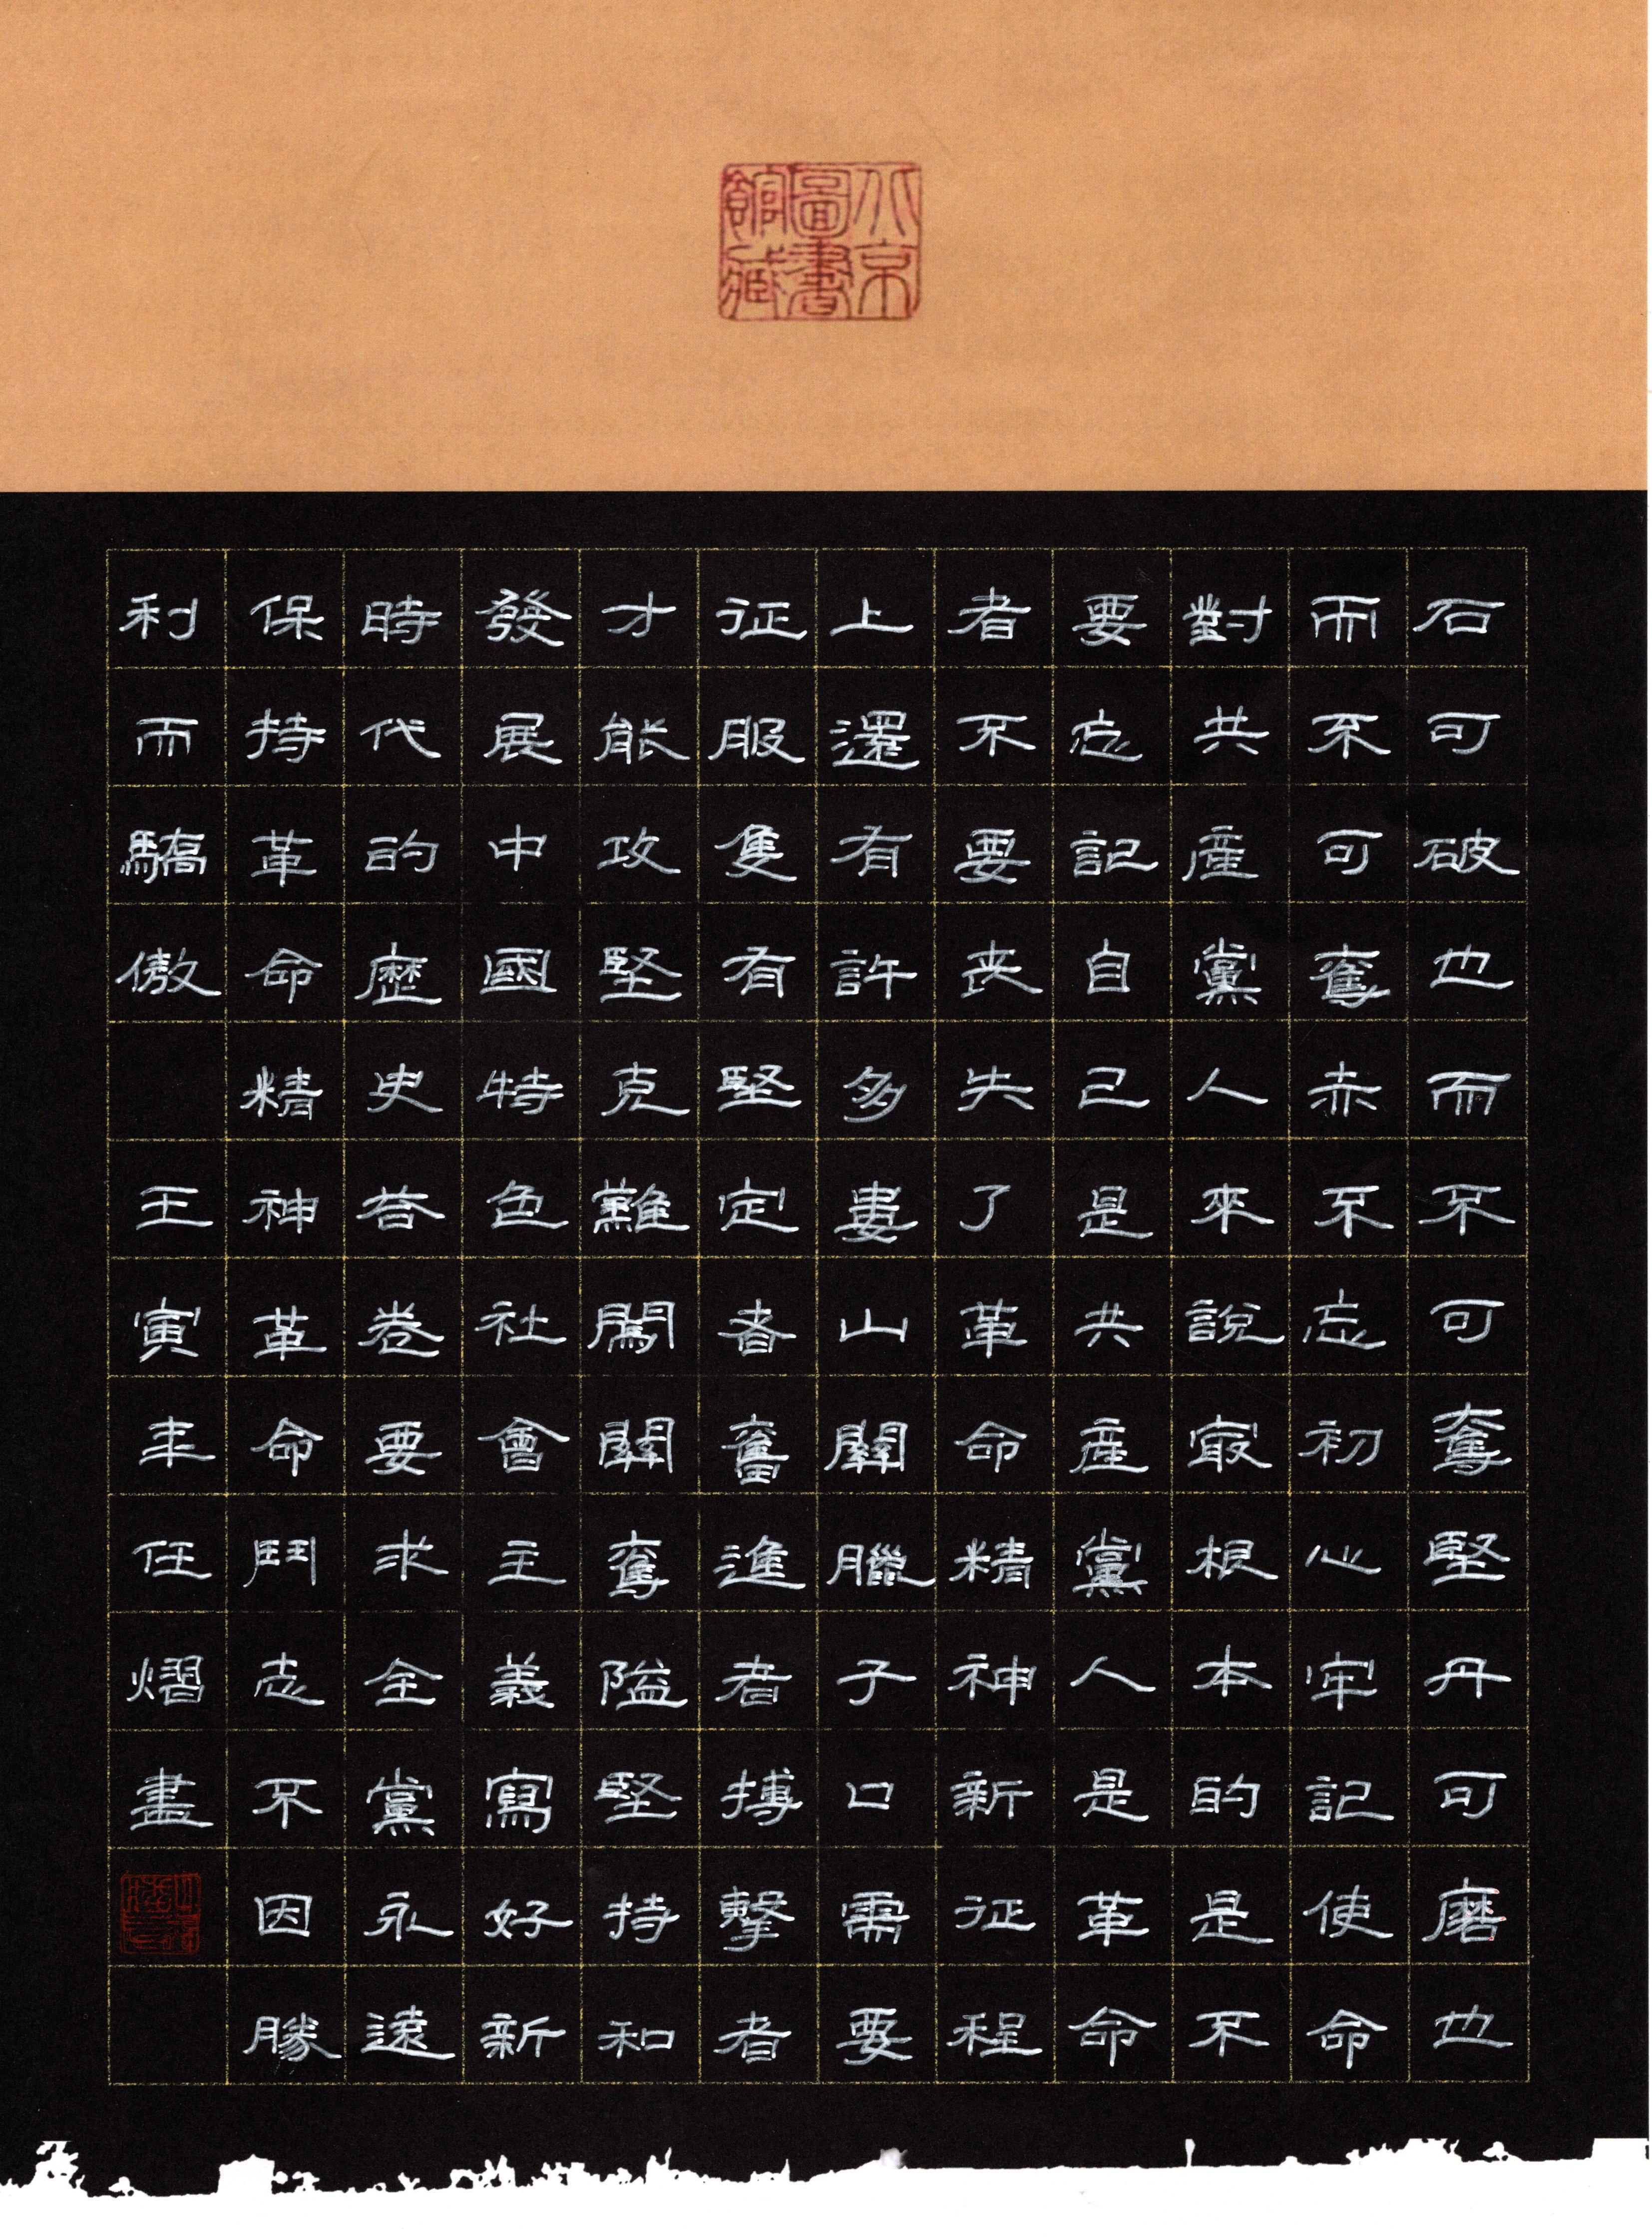 北京
圖書
館藏
石可破也而不可奪堅丹可磨也
而不可奪赤不忘初心牢記使命
對共産黨人來說冣根本的是不
要忘記自己是共産黨人是革命
者不要丧失了革命精神新征程
上還有許多婁山關臘子口需要
征服隻有堅定者奮進者搏擊者
才能攻堅克難闖關奪隘堅持和
發展中國特色社會主義寫好新
時代的歷史荅卷要求全黨永遠
保持革命精神革命鬥志不因勝
利而驕傲 壬寅年任熠書